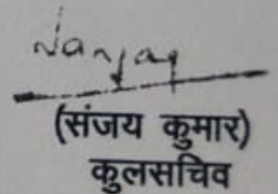 Sanjay
(संजय कुमार)
कुलसचिव